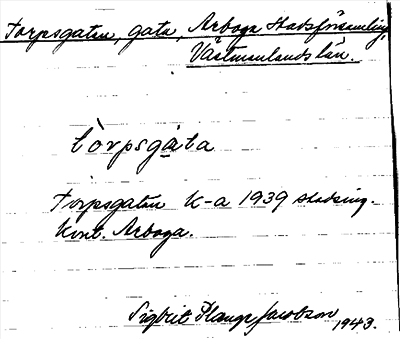 Torpsgatan, gata, Arboga Stadsförsamling,
Västmanlands län.
tòrpsgàta
Torpsgatan K-a 1939 stadsing.
kont. Arboga.
Sigbrit Plange Jacobson 1943.